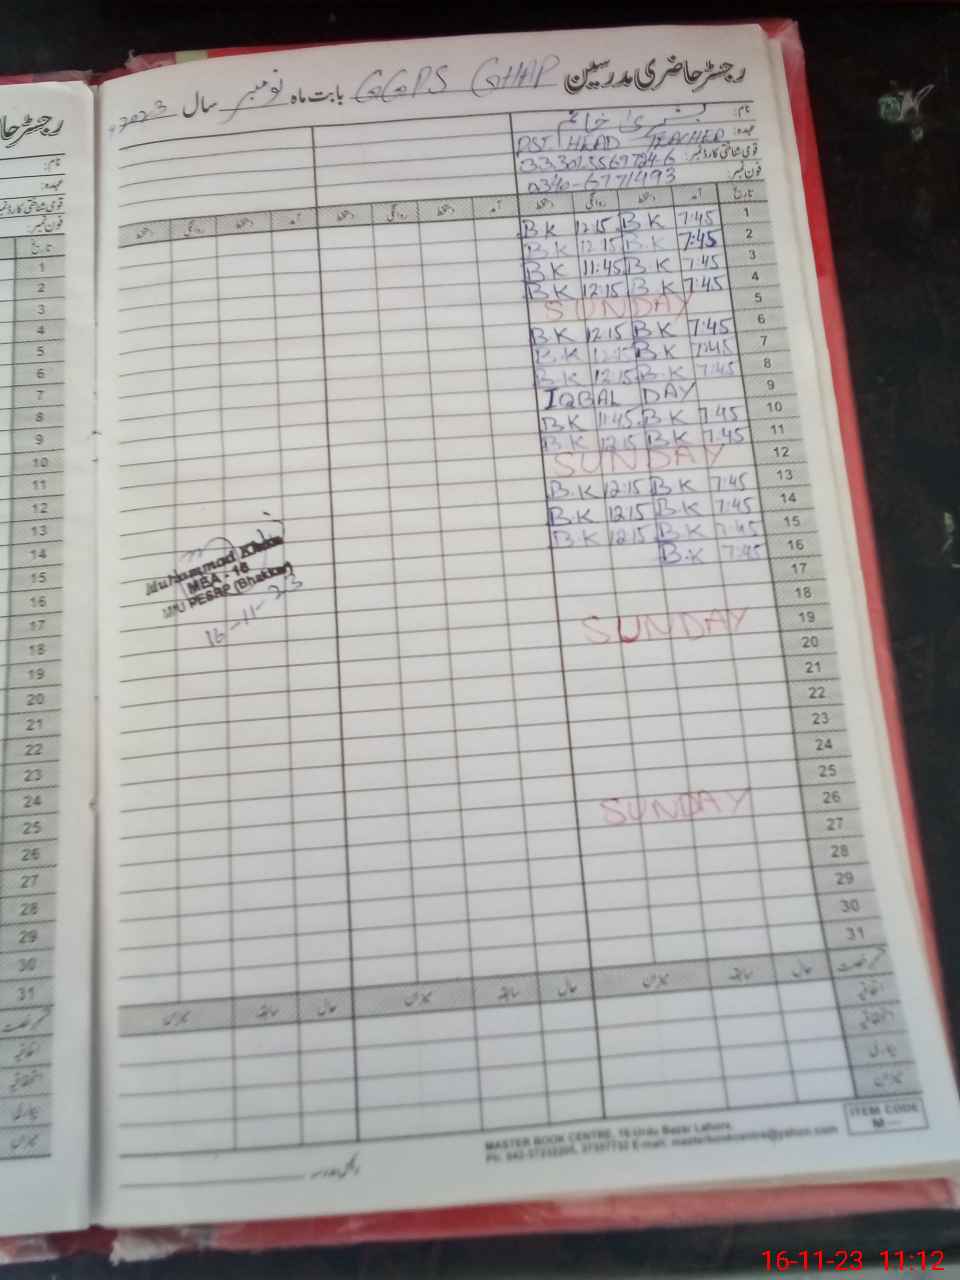 رجسٹر حاضری مدرسین GGPS GHAP بابت ماہ نومبر سال 2023ء
نام: بشریٰ خانم
عہدہ: PST HEAD TEACHER
قومی شناختی کارڈ نمبر:
فون نمبر: 0340-6771493
تاریخ آمد دستخط روانگی دستخط آمد دستخط روانگی دستخط
1 7:45 BK 12:15 BK
2 7:45 BK 12:15 BK
3 7:45 BK 11:45 BK
4 7:45 BK 12:15 BK
5 SUNDAY
6 7:45 BK 12:15 BK
7 7:45 BK 12:15 BK
8 7:45 BK 12:15 BK
9 IQBAL DAY
10 7:45 BK 11:45 BK
11 7:45 BK 12:15 BK
12 SUNDAY
13 7:45 BK 12:15 BK
14 7:45 BK 12:15 BK
15 7:45 BK 12:15 BK
16 7:45 BK
17
18
19 SUNDAY
20
21
22
23
24
25
26 SUNDAY
27
28
29
30
31
Muhammad
MEA - 16
PESRP (Bhakkar)
16-11-23
حال سابقہ میزان حال سابقہ میزان حال سابقہ میزان
اتفاقیہ
استحقاقیہ
بیماری
میزان
MASTER BOOK CENTRE, 16 Urdu Bazar Lahore.
E-mail: masterbookcentre@yahoo.com
ITEM CODE
M
رجسٹر حا
نام:
عہدہ:
قومی شناختی کارڈ نمبر
فون نمبر:
تاریخ
1
2
3
4
5
6
7
8
9
10
11
12
13
14
15
16
17
18
19
20
21
22
23
24
25
26
27
28
29
30
31
اتفاقیہ
استحقاقیہ
بیماری
میزان
16-11-23 11:12